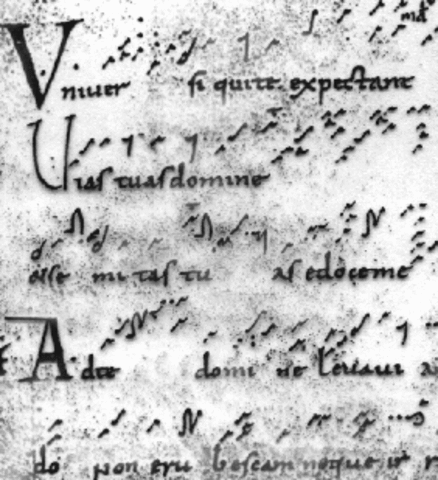 Vniuer si qui te expectant
Uias tuas domine
mi tas tu as edoceme
Ad te domi ne leuaui
non eru bescam neque